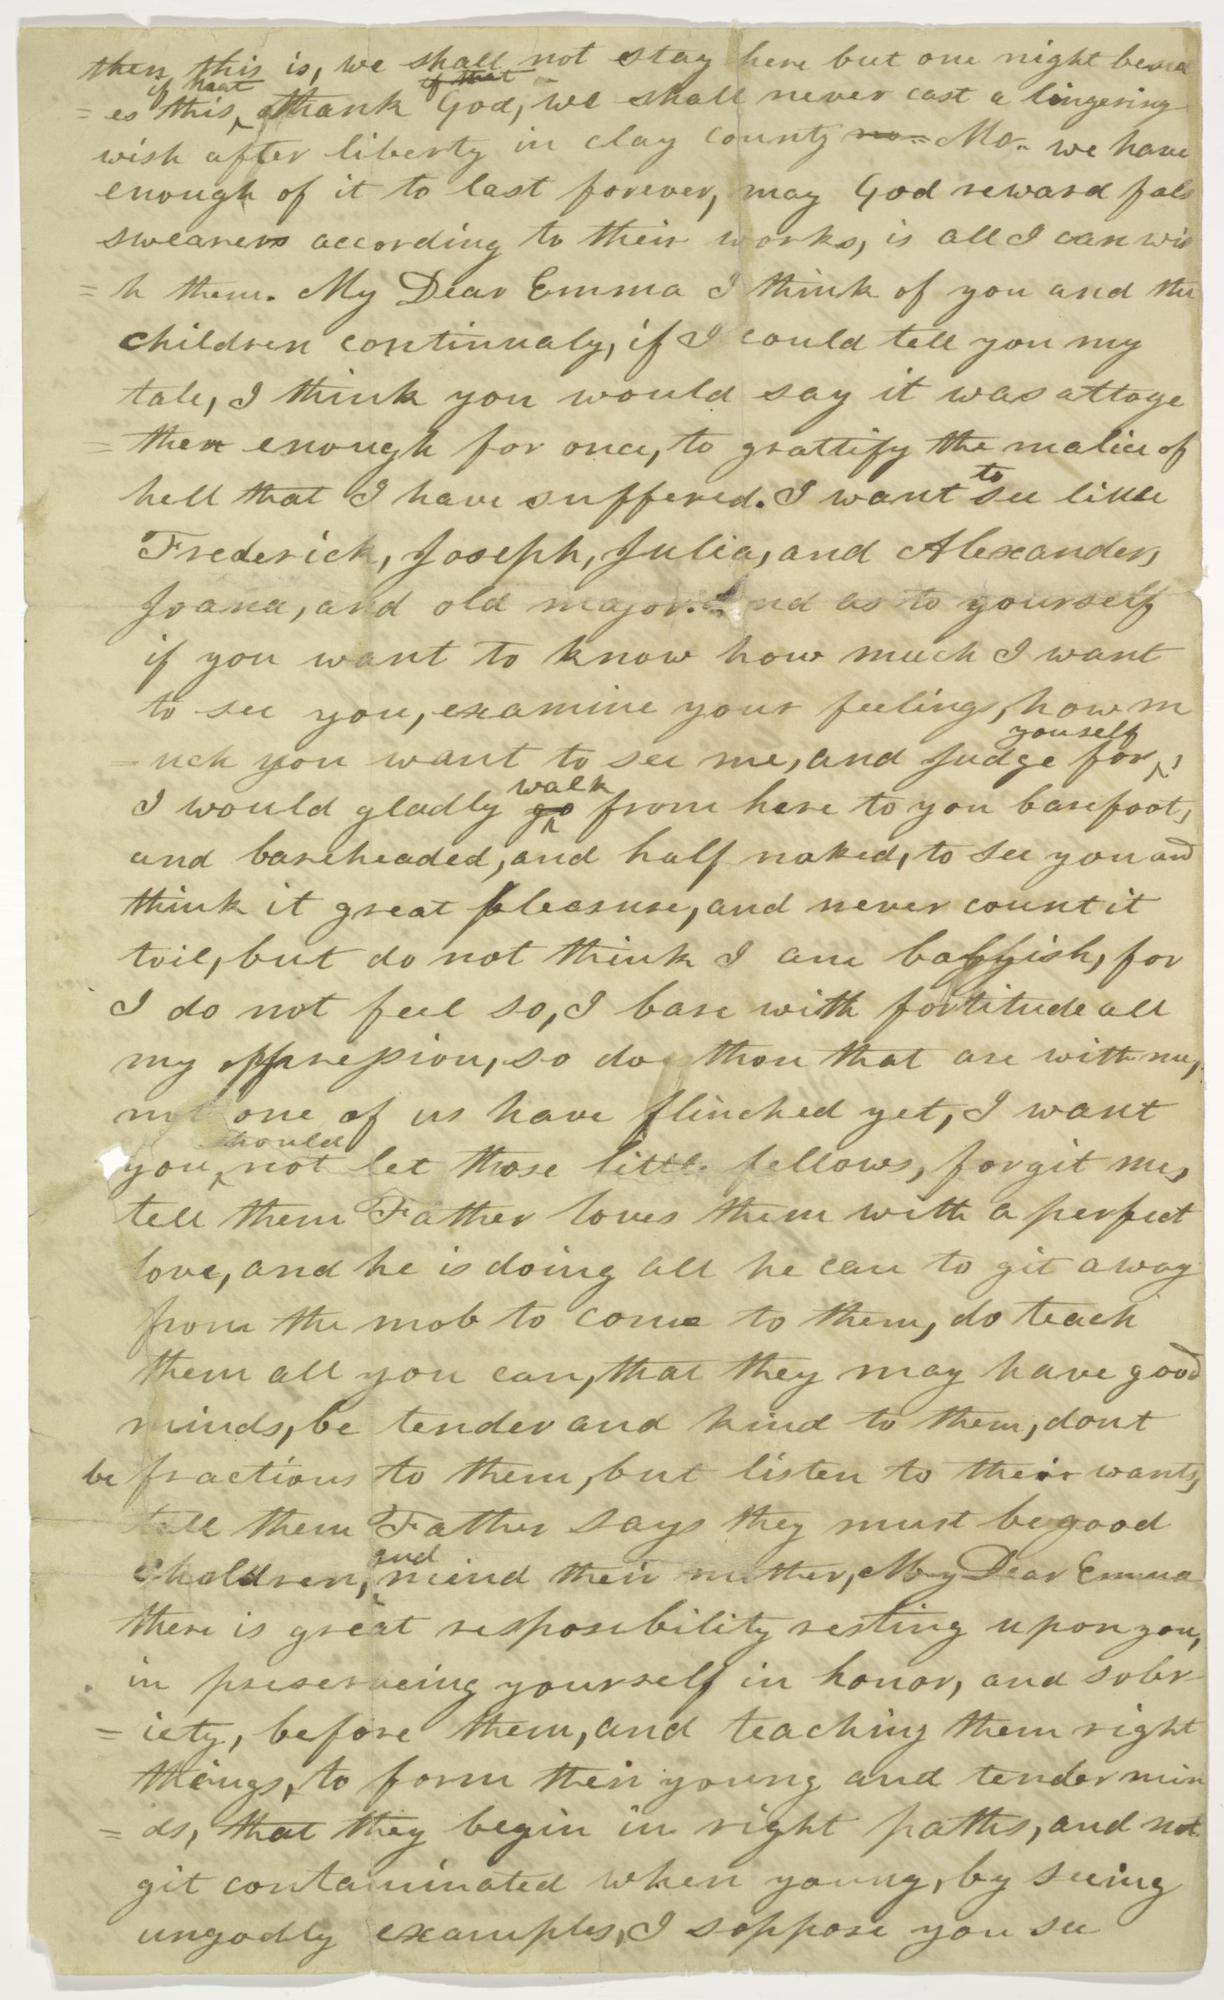 then this is, we shall not stay here but one night besid
= es this, if that thank God, if that we shall never cast a lingering
wish after liberty in clay county mo.. Mo.. we have
enough of it to last forever, may God reward fals
swearers according to their works, is all I can wis
= h them. My Dear Emma I think of you and the
children continualy, if I could tell you my
tale, I think you would say it was altoge
= ther enough for once, to grattify the malice of
hell that I have suffered. I want to see little
Frederick, Joseph, Julia, and Alexander,
Joana, and old major. And as to yourself
if you want to know how much I want
to see you, examine your feelings, how m
= uch you want to see me, and Judge for yourself,
I would gladly go walk from here to you barefoot,
and bareheaded, and half naked, to see you and
think it great pleasure, and never count it
toil, but do not think I am babyish, for
I do not feel so, I bare with fortitude all
my oppression, so do those that are with me,
not one of us have flinched yet, I want
you should not let those little fellows, forgit me,
tell them Father loves them with a perfect
love, and he is doing all he can to git away
from the mob to come to them, do teach
them all you can, that they may have good
minds, be tender and kind to them, dont
be fractious to them, but listen to their wants,
tell them Father says they must be good
children, and mind their mother, My Dear Emma
there is great resposibility resting upon you,
in preserveing yourself in honor, and sobr
= iety, before them, and teaching them right
things, to form their young and tender min
= ds, that they begin in right paths, and not
git contaminated when young, by seeing
ungodly examples, I soppose you see